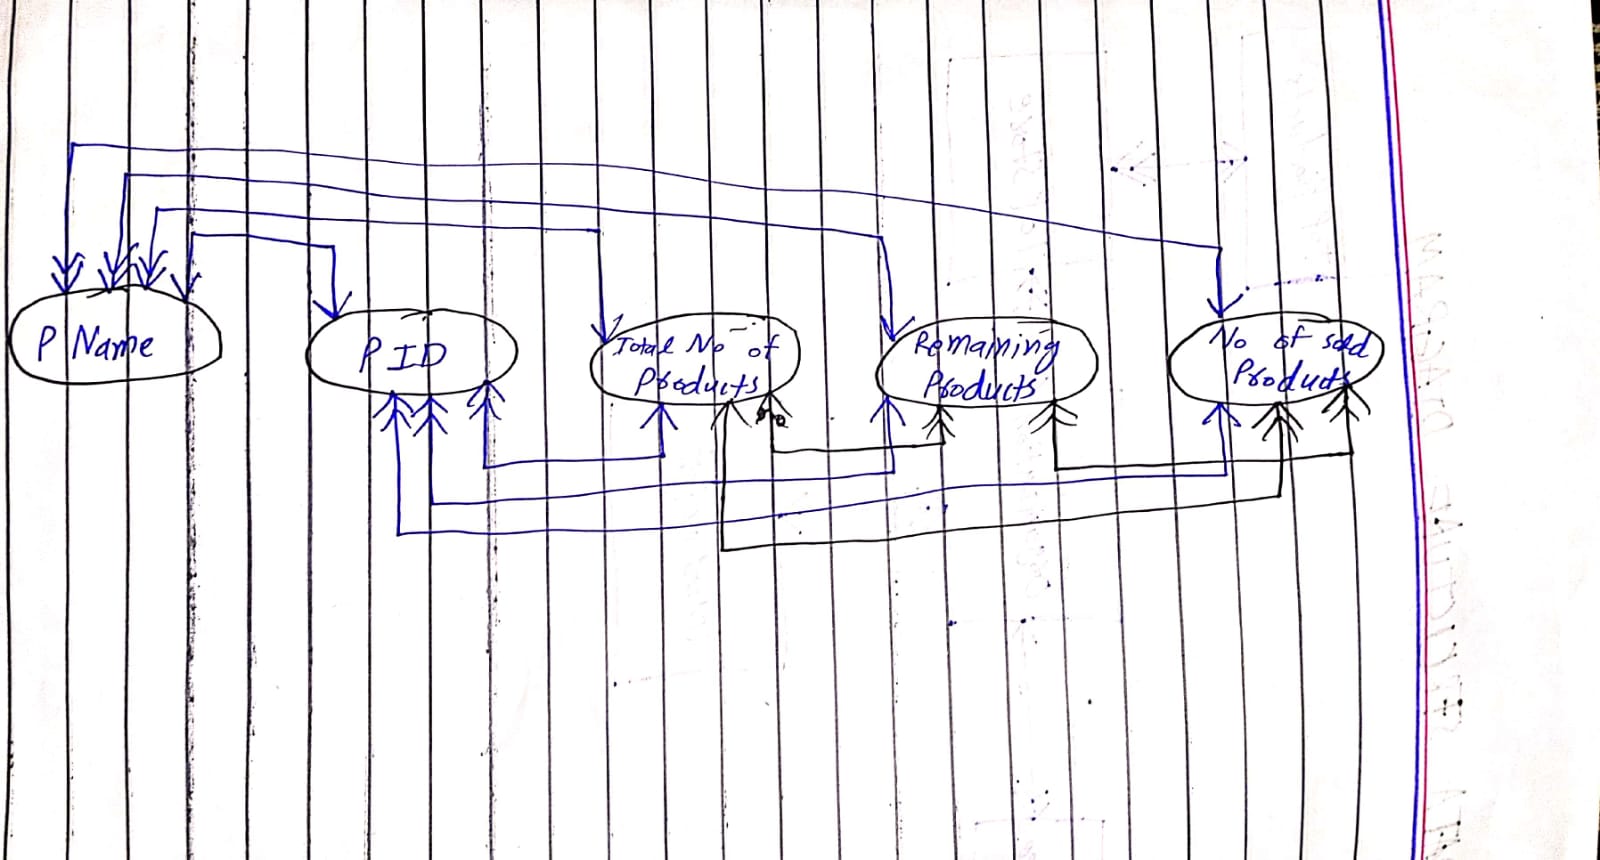 P Name
P ID
Total No of
Products
Remaining
Products
No of sold
Products